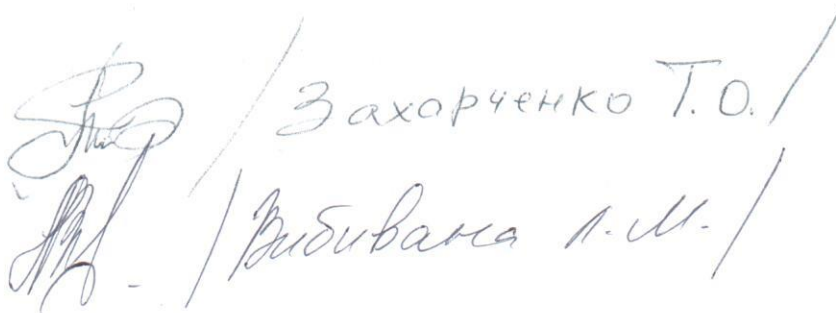 / Захарченко Т.О. /
/ Вибивана Л.М. /